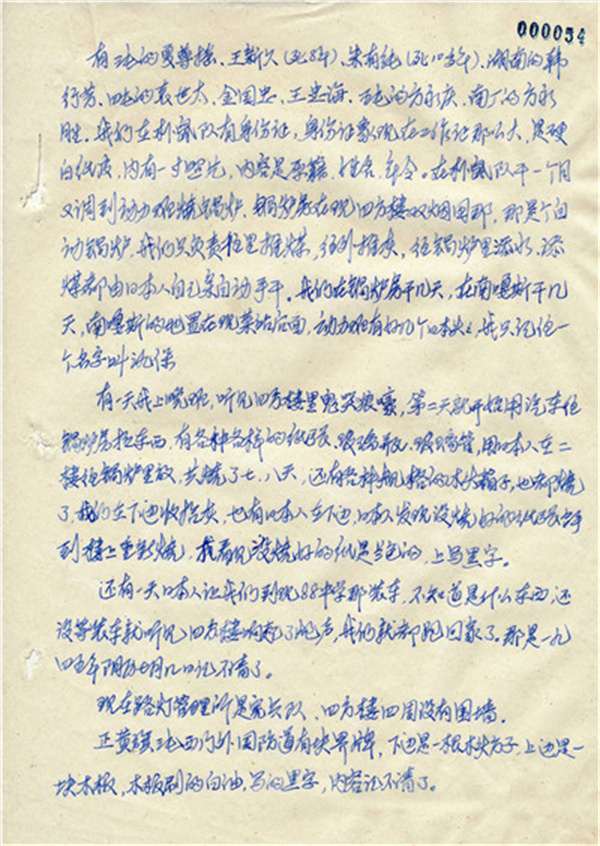 000054
有 的 、王新久(死8年)、朱有纯(死10多年)、湖南的韩
行芳、 的袁也太、金国忠、王 海、 的方永庆、南厂的方永
胜。我们在 队有身份证,身份证象现在工作证那么大,是硬
白纸皮,内有一寸照片,内容是原籍、姓名、年令。在 队干一个月
又调到动力班烧锅炉,锅炉房在现四方楼双烟囱那,那是个自
动锅炉,我们只负责往里推煤,往外推灰,往锅炉里添水、添
煤都由日本人自己亲自动手干。我们在锅炉房干几天,在南嘎斯干几
天,南嘎斯的位置在现菜站后面,动力班有好几个日本头,我只记住一
个名字叫
有一天我上晚班,听见四方楼里鬼哭狼嚎,第二天就开始用汽车往
锅炉房拉东西,有各种各样的纸张、玻璃瓶、玻璃管,用日本人在二
楼往锅炉里放,共烧了七、八天,还有各种规格的木头箱子,也都烧
了,我们在下边收拾灰,也有日本人在下边,日本人发现没烧好的纸张拿
到楼上重新烧,我看见没烧好的纸是 色的,上写黑字。
还有一天日本人让我们到现88中学那装车,不知道是什么东西,还
没等装车就听见四方楼响起了炮声,我们就都跑回家了。那是一九
四五年阴历七月几日记不清了。
现在路灯管理所是宪兵队、四方楼四周没有围墙。
正黄旗 西门外国防道有块界牌,下边是一根木头方子,上边是一
块木板,木板刷的白油,写的黑字,内容记不清了。